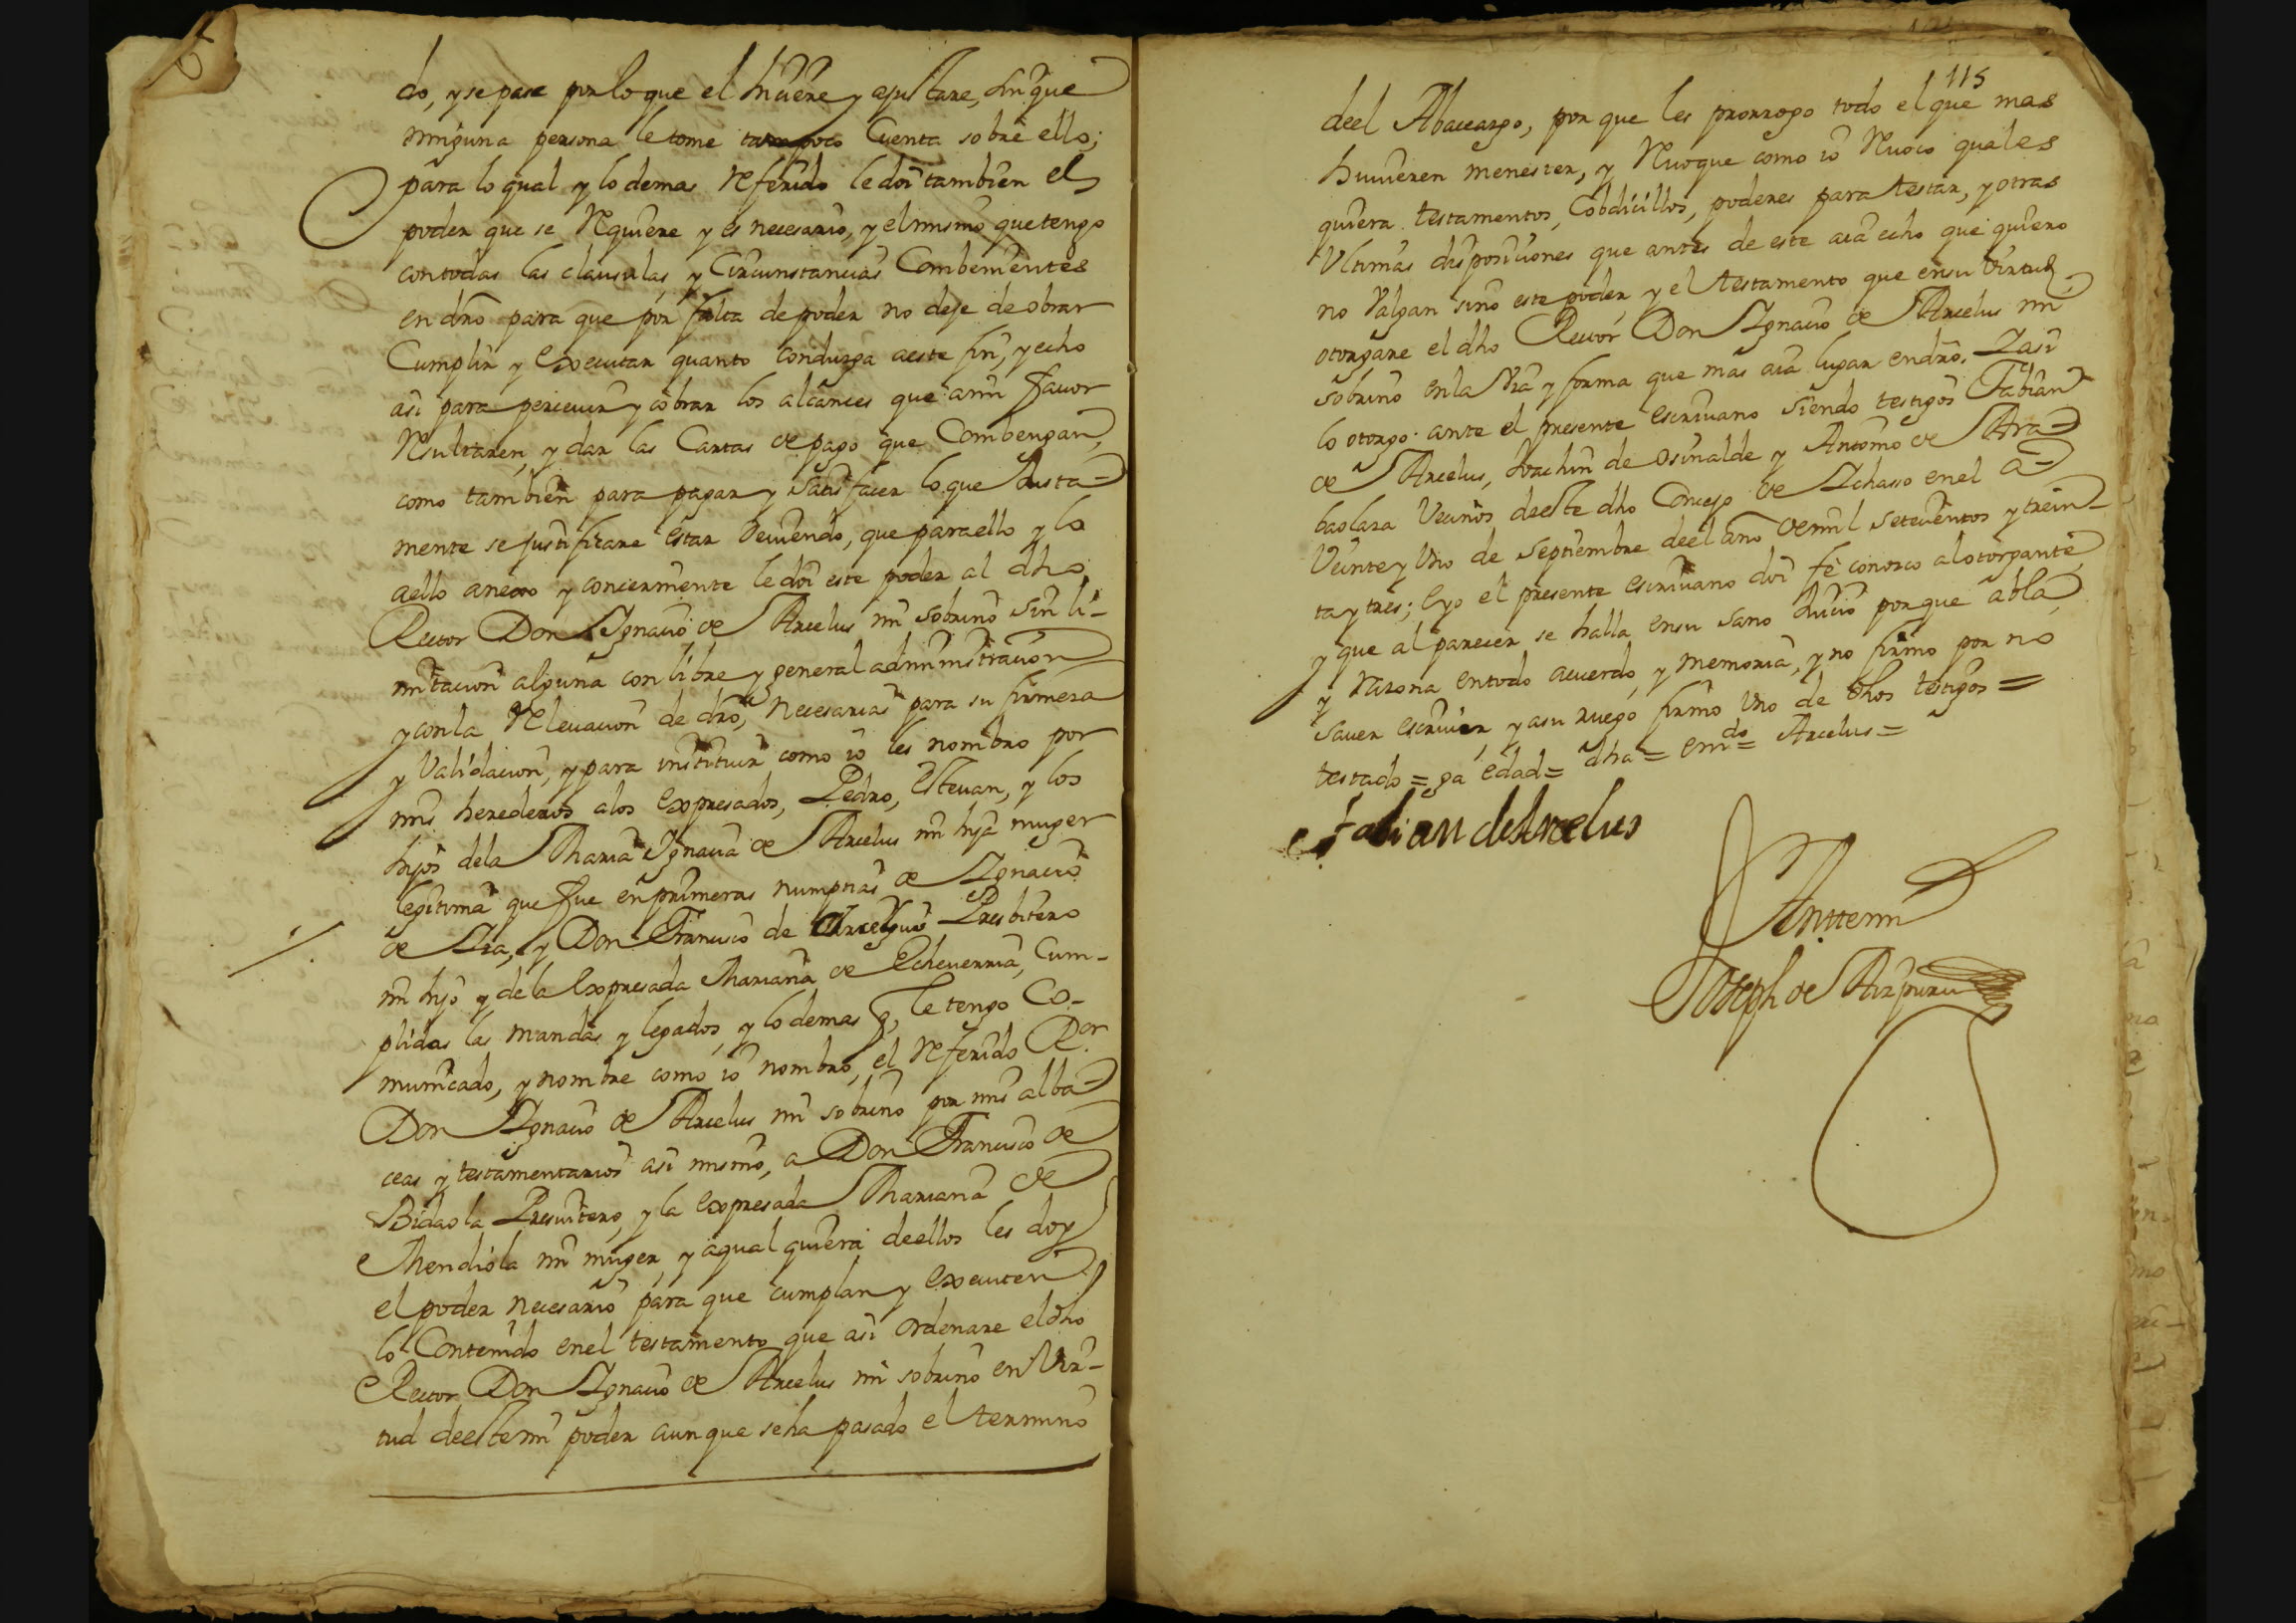 do, y se pase por lo que el hiciere y ajustare, sin que
ninguna persona le tome tampoco Cuenta sobre ello;
para lo qual y lo demas Referido le doi tambien el
poder que se Requiere y es necesario, y el mismo que tengo
con todas las clausulas, y Circunstancias Combenientes
en dro para que por falta de poder no deje de obrar
Cumplir y Executar quanto conduzga a este fin, y echo
asi para perceuir y cobrar los alcances que a mi fauor
Resultaren, y dar las Cartas de pago que Combengan,
como tambien para pagar y Satisfacer lo que Justa=
mente se justificare estar deuiendo, que para ello y lo
a ello anexo y concerniente le doi este poder al dho
Rector Don Ignacio de Arcelus mi sobrino sin li-
mitacion alguna con libre y general administracion
y con la Releuacion de dro, necesarias para su firmeza
y Validacion, y para instituir como io les nombro por
mis herederos a los Expresados, Pedro, Esteuan, y los
hijos de la Maria Ignacia de Arcelus mi hija muger
legitima que fue en primeras numptias de Ignacio
de Lia, y Don Francisco de Presbitero
mi hijo y de la Expresada Mariana de Echeuerria, Cum-
plidas las mandas y legados, y lo demas q, le tengo Co-
municado, y nombre como io nombro, el Referido Ror
Don Ignacio de Arcelus mi sobrino por mis alba=
ceas y testamentarios asi mismo, a Don Francisco de
Bidaola Presuitero, y la Expresada Mariana de
Mendiola mi muger, y a qual quiera de ellos les doy
el poder necesario para que cumplan y Executen
lo Contenido en el testamento que asi ordenare el dho
Rector Don Ignacio de Arcelus mi sobrino en Vir-
tud de este mi poder aunque se ha pasado el termino
115
de el Abaceazgo, por que les prorrogo todo el que mas
huuieren menester, y Reuoque como io Reuoco quales
quiera testamentos, Cobdicillos, poderes para testar, y otras
Ultimas disposiciones que antes de este aia echo que quiero
no Valgan sino este poder, y el testamento que en su Virtud,
otorgare el dho Rector Don Ignacio de Arcelus mi
Sobrino en la Via y forma que mas aia lugar en dro. I asi
lo otorgo ante el presente escriuano siendo testigos Fabian
de Arcelus, Joachin de Osinalde y Antonio de Arra=
baolaza Vecinos de este dho Concejo de Ichaso en el a=
Veinte y Uno de Septiembre de el año de mil setecientos y trein-
ta y tres; E yo el presente escriuano doi fe conozco al otorgante
y que al parecer se halla en su sano Juicio porque abla,
y Razona en todo acuerdo, y memoria, y no firmo por no
Sauer escriuir, y a su ruego firmo Uno de dhos testigos =
testado = ga edad = dha = Emdo = Arcelus =
Fabian de Arcelus
Ante mi
Joseph de Aizpuru